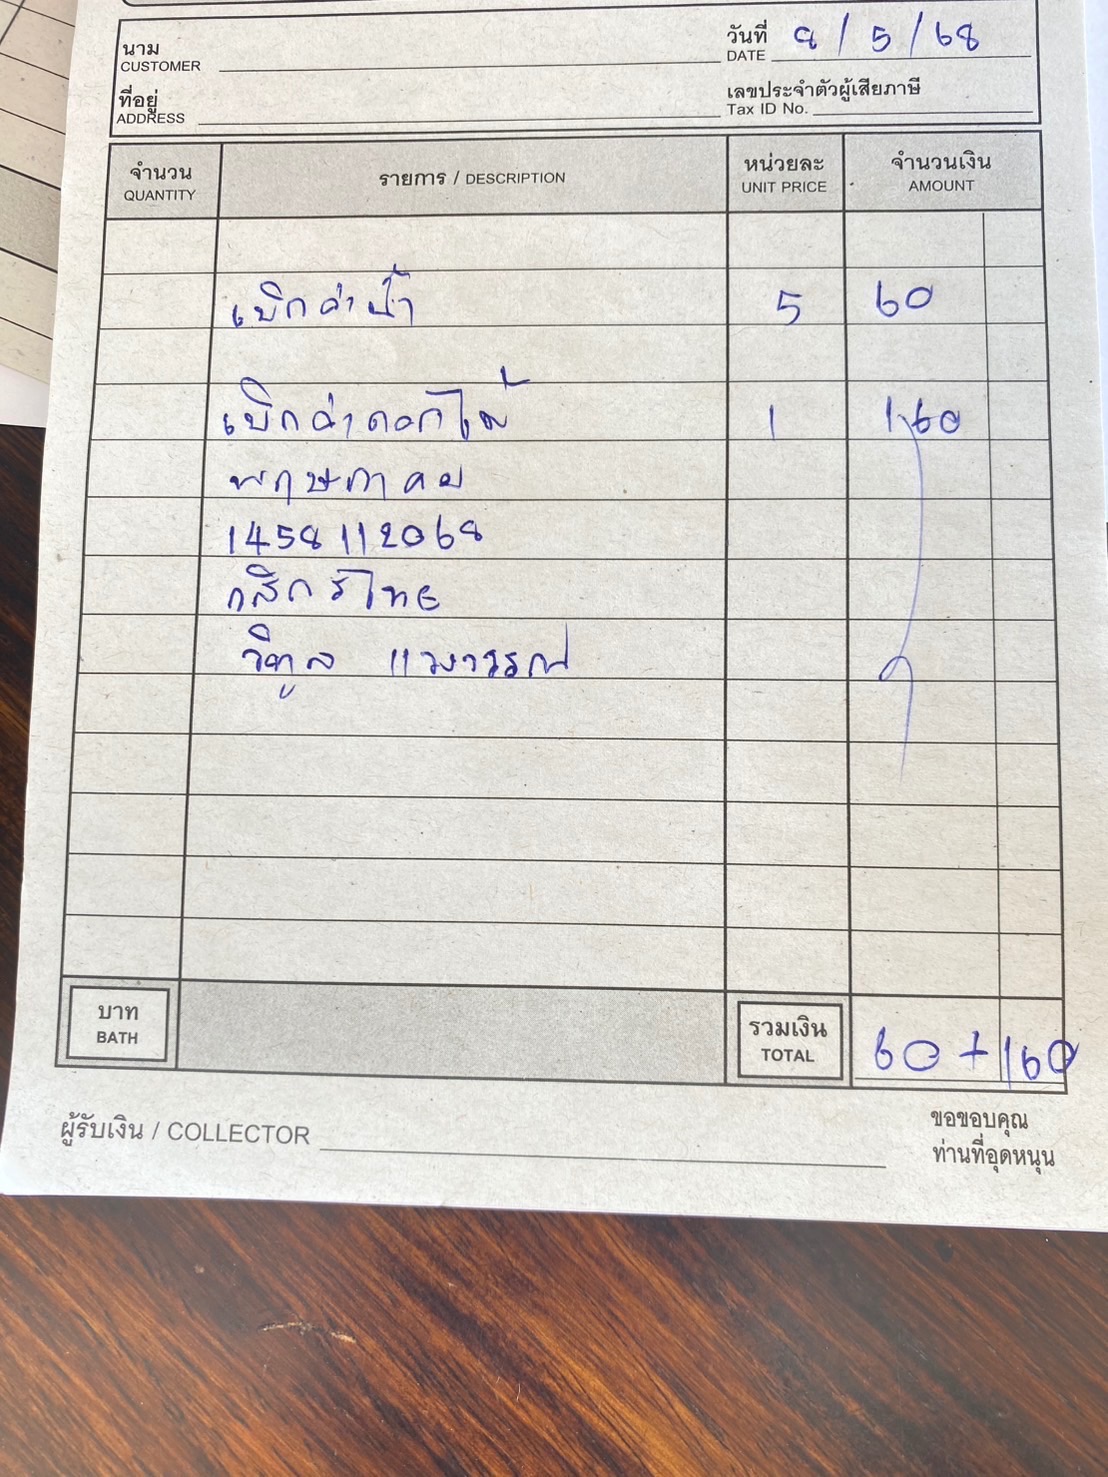 นาม
CUSTOMER
วันที่
DATE 8/5/68
ที่อยู่
ADDRESS
เลขประจำตัวผู้เสียภาษี
Tax ID No.
จำนวน
QUANTITY
รายการ / DESCRIPTION
หน่วยละ
UNIT PRICE
จำนวนเงิน
AMOUNT
เบิกค่าน้ำ 5 60
เบิกค่าดอกไม้ 1 160
พฤษภาคม
1458112068
กสิกรไทย
วิฑูล แวงวรรณ
บาท
BATH
รวมเงิน
TOTAL
60+160
ผู้รับเงิน / COLLECTOR
ขอขอบคุณ
ท่านที่อุดหนุน